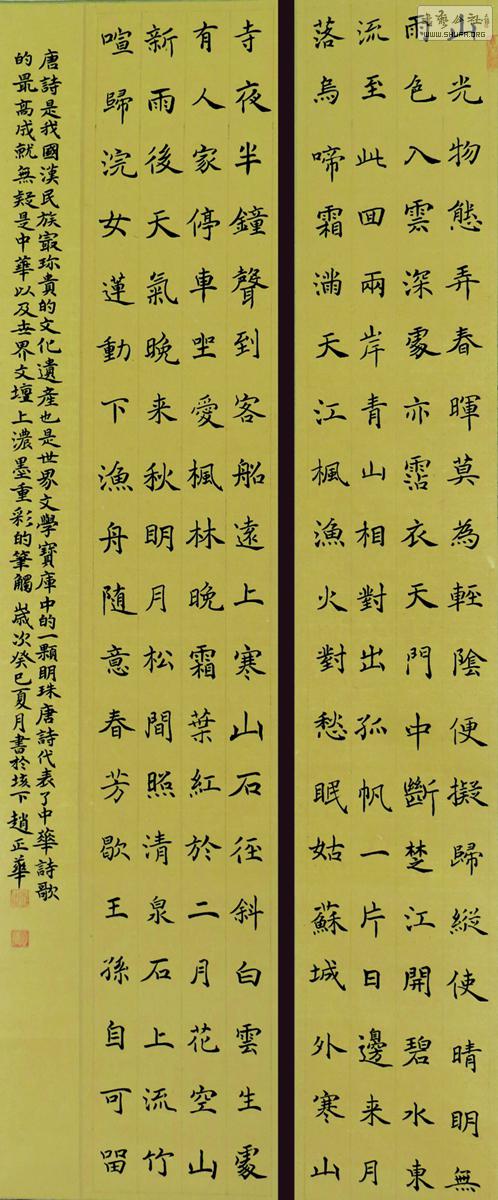 山光物態弄春暉莫為輕陰便擬歸縱使晴明無
雨色入雲深處亦霑衣天門中斷楚江開碧水東
流至此回兩岸青山相對出孤帆一片日邊来月
落烏啼霜滿天江楓漁火對愁眠姑蘇城外寒山
寺夜半鐘聲到客船遠上寒山石徑斜白雲生處
有人家停車坐愛楓林晚霜葉紅於二月花空山
新雨後天氣晚来秋明月松間照清泉石上流竹
喧歸浣女蓮動下漁舟随意春芳歇王孫自可留
唐詩是我國漢民族最珎貴的文化遺產也是世界文學寶庫中的一顆明珠唐詩代表了中華詩歌
的最高成就無疑是中華以及世界文壇上濃墨重彩的筆觸歲次癸巳夏月書於垓下趙正華
WWW.SHUFA.ORG